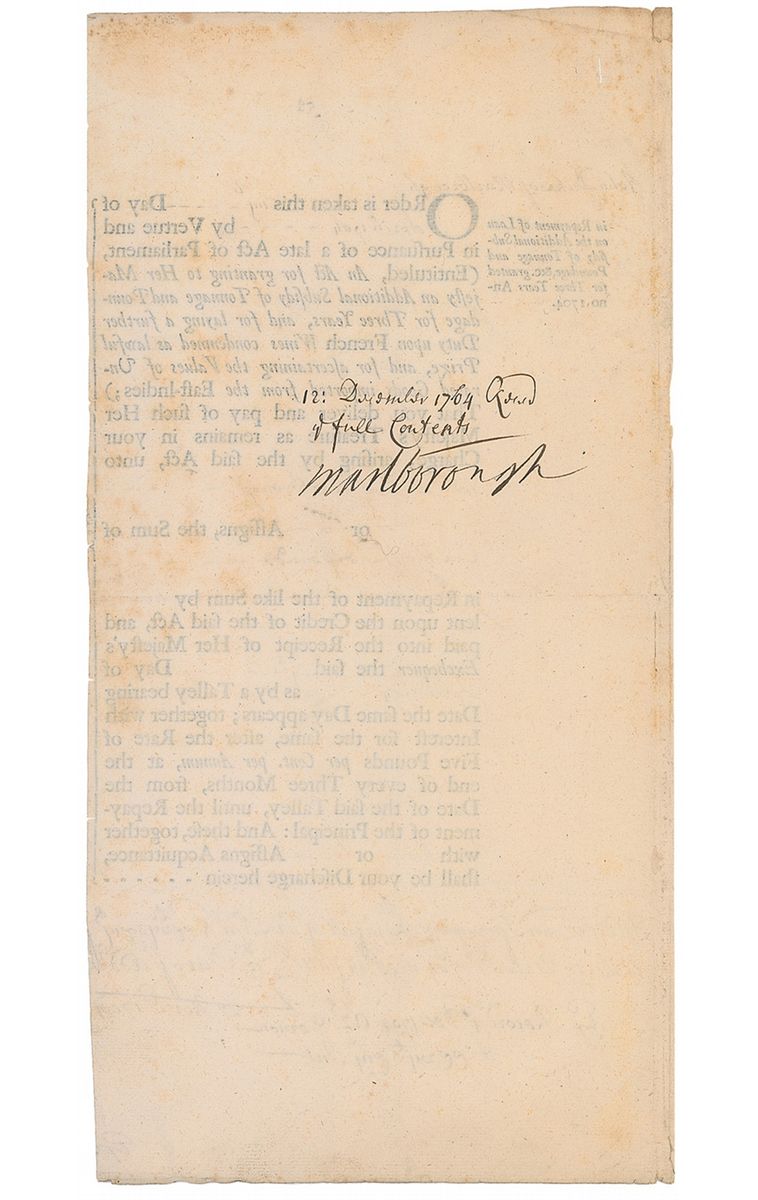 ORder is taken this Day of
by Vertue and
in Purſuance of a late Act of Parliament,
(Entituled, An Act for granting to Her Ma-
jeſty an Additional Subſidy of Tonnage and Poun-
dage for Three Years, and for laying a further
Duty upon French Wines condemned as lawful
Prize, and for aſcertaining the Values of Un-
Goods imported from the Eaſt-Indies;)
That you deliver and pay of ſuch Her
Majeſty's Treaſure as remains in your
Charge ariſing by the ſaid Act, unto
or Aſſigns, the Sum of
in Repayment of the like Sum by
lent upon the Credit of the ſaid Act, and
paid into the Receipt of Her Majeſty's
Exchequer the ſaid Day of
as by a Talley bearing
Date the ſame Day appears; together with
Intereſt for the ſame, after the Rate of
Five Pounds per Cent. per Annum, at the
end of every Three Months, from the
Date of the ſaid Talley, until the Repay-
ment of the Principal: And theſe, together
with or Aſſigns Acquittance,
ſhall be your Diſcharge herein - - - - - -
in Repayment of Loan
on the Additional Sub-
ſidy of Tonnage and
Poundage, &c. granted
for Three Years An-
no. 1704.
12: December 1764
full Contents
Marlborough